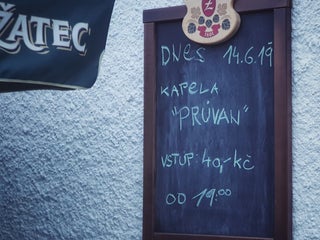 ŽATEC
DNES 14.6.19
KAPELA
"PRŮVAN"
VSTUP: 40,-KČ
OD 19:00